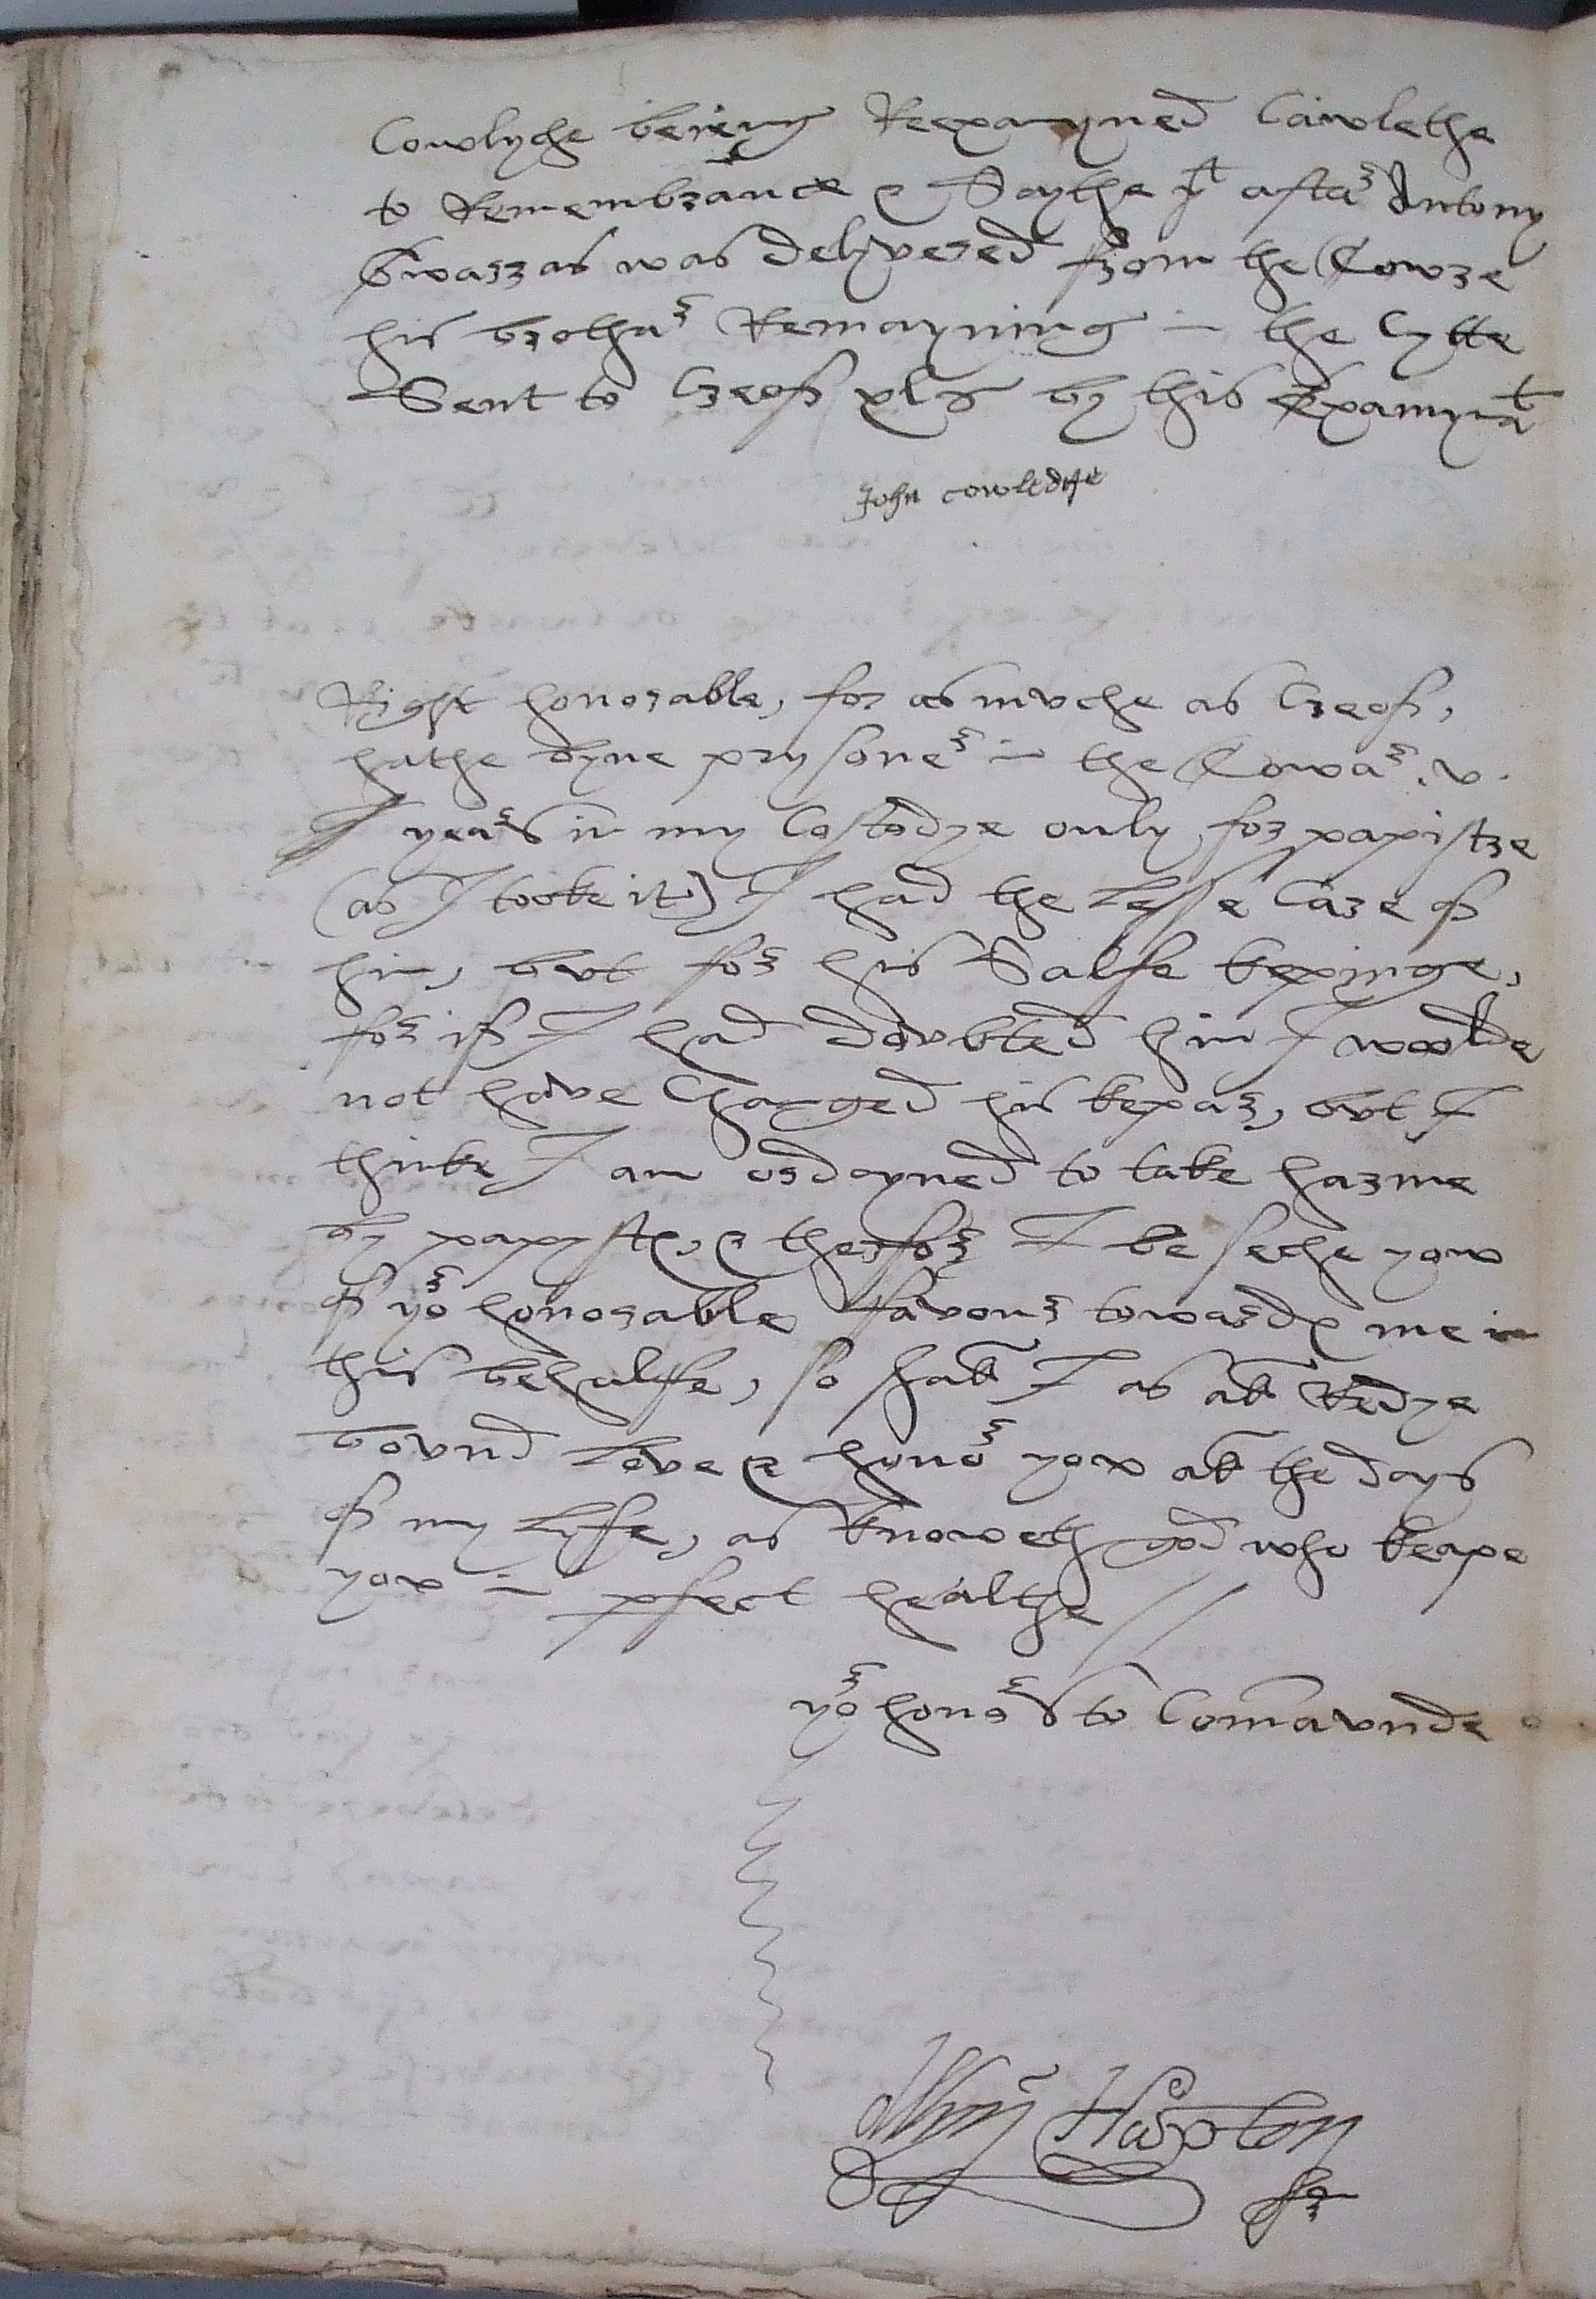 Cowlyche beieng Reexamyned Cawlethe
to Remembrance & Saythe yt aftar Antony
was delyvered from the Towre
his brothar Remayning in the Cytte
Sent to Creof xls by this Examynat
John cowledge
Right honorable, for as muche as Creof,
hathe byne prysoner in the Towar .v.
years in my Costodye only for papistre
(as I tooke it) I had the lesse Care of
him, but for his Salfe kepinge,
for if I had doubted him I woolde
not have Charged his kepar, but I
thinke I am ordayned to take harme
by papystes, & therfor I be seche yow
of yor honorable favour towardes me in
this behalfe, so shall I as all Redye
bound Love & honor yow all the days
of my Lyfe, as Knoweth god who keape
yow in pfect healthe //
yor honors to Comaunde
Owyn Hopton